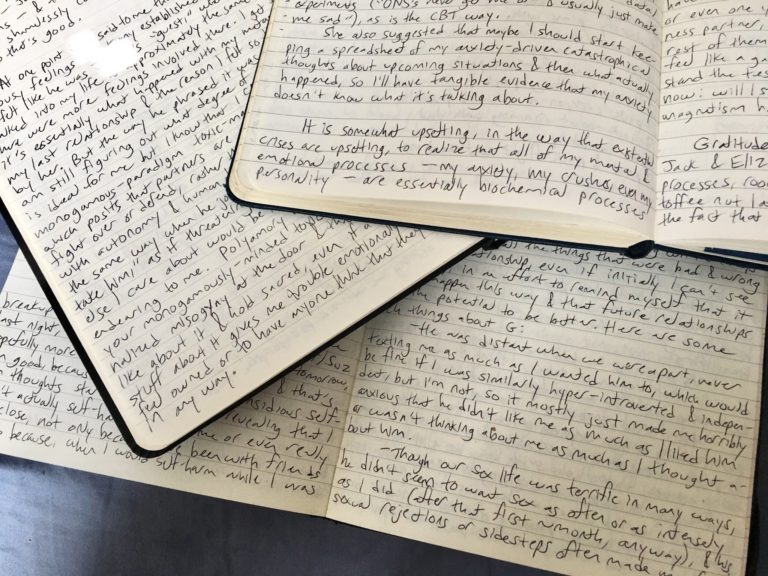 shamelessly c
that's good.
At one point
said to me
feelings
my established
felt like he was a "guest" who
into my life
approximately the same
there were more feelings involved there. I get
it's essentially what happened with my
my last relationship & the reason I felt so
by her. But the way he phrased it was
am still figuring out what degree of
is ideal for me but I know that I
monogamous-paradigm toxic-mas
which posits that partners are
fight over or defend, rather
with autonomy & human
the same way when he jo
take him," as if threatenin
else I care about would be
endearing to me. Polyamory
your monogamously-minded
nalized misogyny at the door
like about it & hold sacred, even if a
stuff about it gives me trouble emotionally
feel owned or to have anyone think that they
in any way.
experiments ("ONSs never
usually just make
me sad"), as is the CBT way.
She also suggested that maybe I should start kee-
ping a spreadsheet of my anxiety-driven catastrophic
thoughts about upcoming situations & then what actually
happened, so I'll have tangible evidence that my anxiety
doesn't know what it's talking about.
It is somewhat upsetting, in the way that existential
crises are upsetting, to realize that all of my mental &
emotional processes – my anxiety, my crushes, even my
personality – are essentially biochemical processes
or even one i
ness partner,
rest of them
feel like a
stand the tes
now: will I s
magnetism h
Gratitude
Jack & Eliz
processes, roo
toffee nut la
the fact that
the things that were bad & wrong
tionship, even if initially I can't see
in an effort to remind myself that it
happen this way & that future relationships
the potential to be better. Here are some
ch things about G:
-He was distant when we were apart, never
texting me as much as I wanted him to, which would
be fine if I was similarly hyper-introverted & indepen-
dent, but I'm not, so it mostly just made me horribly
anxious that he didn't like me as much as I liked him
or wasn't thinking about me as much as I thought a-
bout him.
-Though our sex life was terrific in many ways,
he didn't seem to want sex as often or as intensely
as I did (after that first
month, anyway), & his
sexual rejections or sidesteps often made
breakup
ast night
pefully more
good, because
thoughts sta
tomorrow,
& that's
t actually self-ha
insidious self-
revealing that I
close not only beca
me or even really
because, when I would self-harm while I was
been with friends